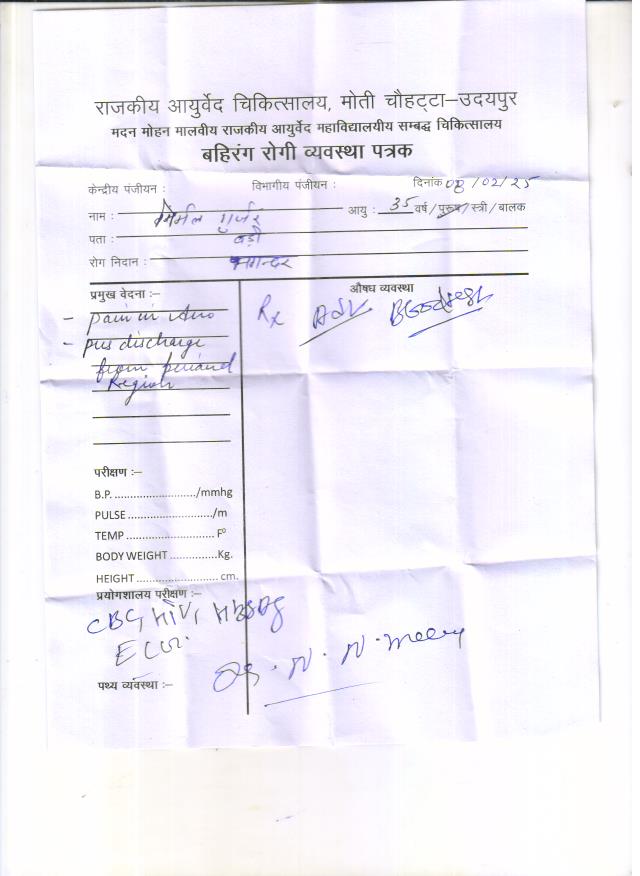 राजकीय आयुर्वेद चिकित्सालय, मोती चौहट्टा–उदयपुर
मदन मोहन मालवीय राजकीय आयुर्वेद महाविद्यालयीय सम्बद्ध चिकित्सालय
बहिरंग रोगी व्यवस्था पत्रक
केन्द्रीय पंजीयन : विभागीय पंजीयन : दिनांक 08/02/25
नाम : निर्मल गुर्जर आयु : 35 वर्ष/पुरूष/स्त्री/बालक
पता : बड़ी
रोग निदान : भगन्दर
प्रमुख वेदना :– औषध व्यवस्था
- pain in Ano
Rx Adv
- pus discharge
from perianal
Region
परीक्षण :–
B.P. ........................../mmhg
PULSE .........................../m
TEMP ............................ F⁰
BODY WEIGHT ...............Kg.
HEIGHT .......................... cm.
प्रयोगशालय परीक्षण :–
CBC, HIV, HBSAg
ECG.
Dr. N. N. Meena
पथ्य व्यवस्था :–